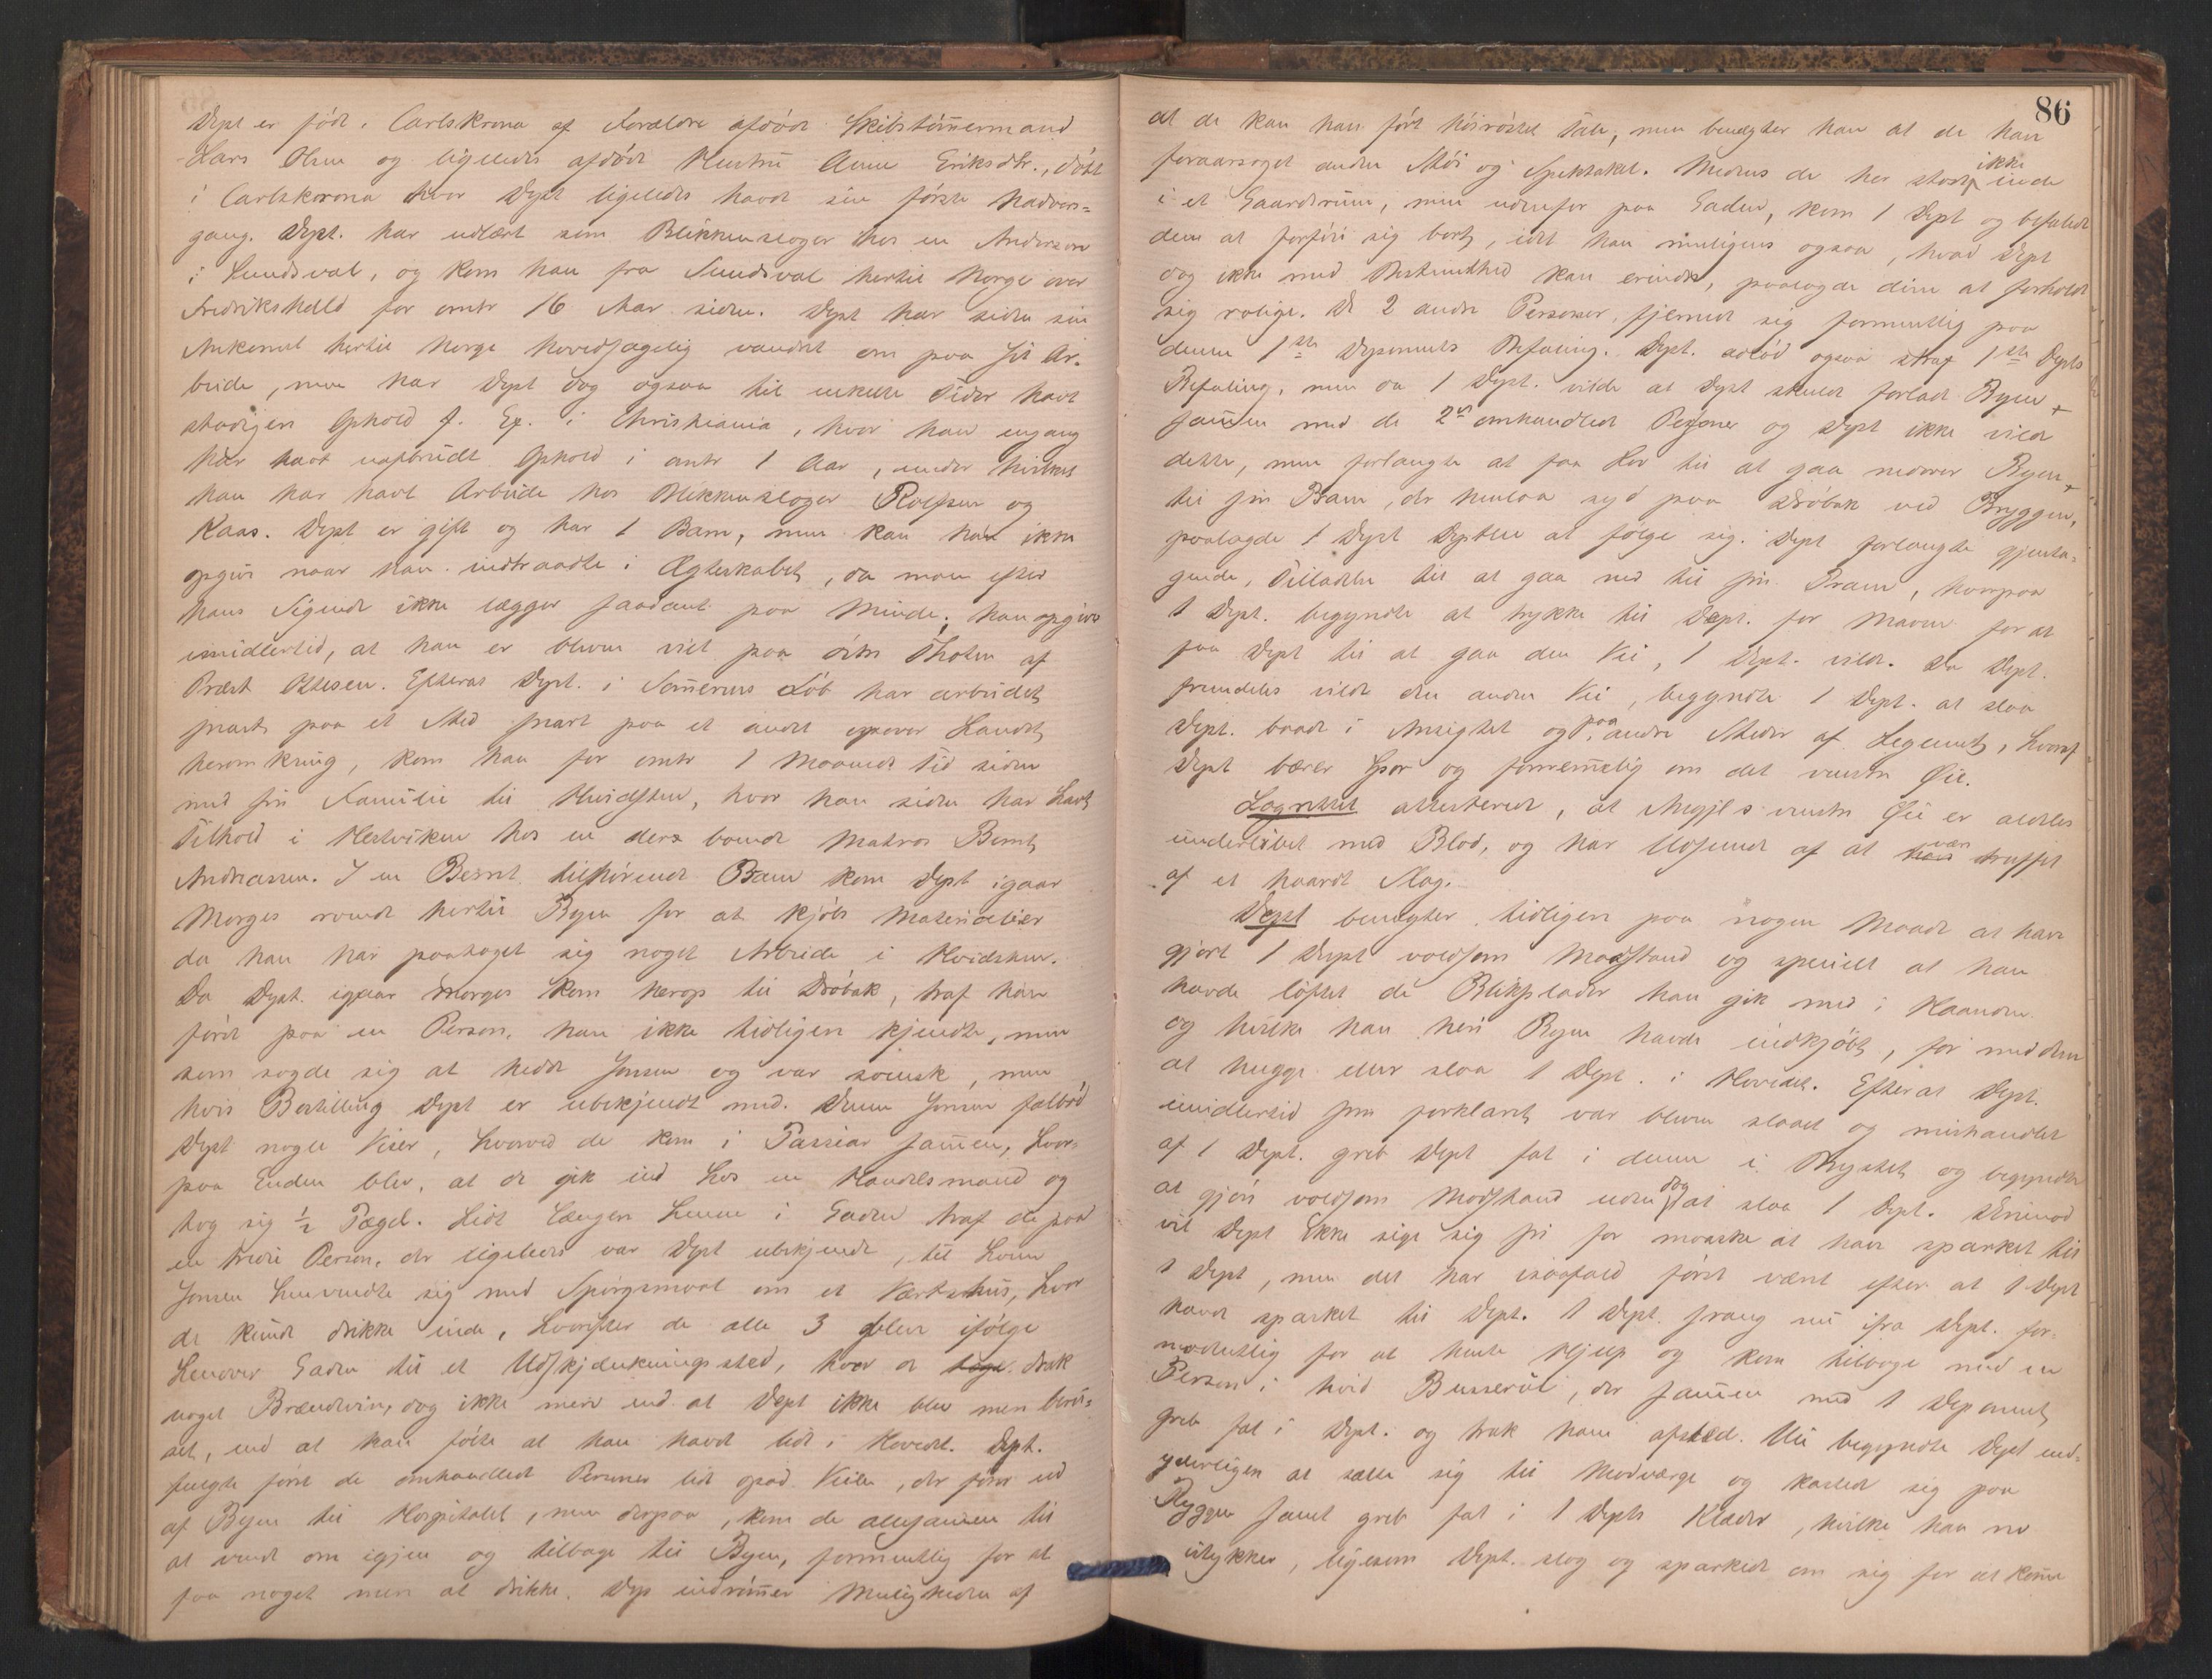 Dept er född i Carlskrona af Forældre afdöde Skibstömermand
Lars Olsen og ligeledes afdöde Hustru Anne Eriksdtr., döbt
i Carlskrona hvor Dept ligeledes havde sin förste Nadver=
gang. Dept. har udlært som Blikkenslager hos en Andersson
i Sundsval, og kom han fra Sundsval hertil Norge over
Fredrikshald for omtr 16 Aar siden. Dept har siden sin
Ankomst hertil Norge hovedsagelig vandret om paa sit Ar=
beide, men har Dept dog ogsaa til enkelte Tider havt
stadigere Ophold f. Ex. i Christiania, hvor han engang
har havt uafbrudt Ophold i omtr 1 Aar, under hvilket
han har havt Arbeide hos Blikkenslager Rolfsen og
Kaas. Dept er gift og har 1 Barn, men kan han ikke
opgive naar han indtraadte i Ægteskabet, da man efter
hans Sigende ikke lægger saadant paa Minde; han opgiver
imidlertid, at han er bleven viet paa östre Thoten af
Præst Ottesen. Efterat Dept. i Somerens Löb har arbeidet
snart paa et Sted snart paa et andet opover Landet
heromkring, kom han for omtr 1 Maaneds Tid siden
med sin Familie til Hvidsten, hvor han siden har havt
Tilhold i Hestviken hos en der boende Matros Bernt
Andreassen. I en Bernt tilhörende Pram kom Dept igaar
Morges roende hertil Byen for at kjöbe Materialier
da han har paataget sig noget Arbeide i Hvidsten.
Da Dept. igaar Morges kom herop til Dröbak, traf han
först paa en Person, han ikke tidligere kjendte, men
som sagde sig at hedde Jonsen og var svensk, men
hvis Bestilling Dept er ubekjendt med. Denne Jonsen falböd
Dept nogle Vier, hvorved de kom i Passiar samen, hvor=
paa Enden blev, at de gik ind hos en Handelsmand og
tog sig ½ Pægel. Lidt længere henne i Gaden traf de paa
en tredie Person, der ligeledes var Dept ubekjendt, til hvem
Jonsen henvendte sig med Spörgsmaal om et Værtshus, hvor
de kunde drikke inde, hvorefter de alle 3 fulgte ifölge
henover Gaden til et Udskjænkningssted, hvor de drak
noget Brændevin, dog ikke mere end at Dept ikke blev mere berú=
set, end at han fölte at han havde lidt i Hovedet. Dept.
fulgte först de omhandlede Personer lidt opad Veien, der förer ud
af Byen til Hospitalet, men derpaa, kom de allesamen til
at vende om igjen og tilbage til Byen, formentlig for at
faa noget mere at drikke. Dep indrömer Muligheden af
86
at de kan have fört höiröstet Tale, men benegter han at de have
foraarsaget anden Stöi og Spektakel. Medens de her stod ikke inde
i et Gaardsrum, men udenfor paa Gaden, kom 1 Dept og befalede
dem at forföie sig bort, idet han muligens ogsaa, hvad Dept
dog ikke med Bestemthed kan erindre, paalagde dem at forholde
sig rolige. De 2 andre Personer fjernede sig formentlig paa
denne 1ste Deponents Befaling. Dept. adlöd ogsaa strax 1ste Depts
Befaling, men da 1 Dept. vilde at Dept skulde forlade Byen
samen med de 2de omhandlede Personer og Dept ikke vilde
dette, men forlangte at faa Lov til at gaa nedover Byen
til sin Pram, der henlaa syd paa Dröbak ved Bryggen,
paalagde 1 Dept Deptten at fölge sig. Dept forlangte gjenta=
gende, Tilladelse til at gaa ned til sin Pram, hvorpaa
1 Dept. begyndte at trykke til Dept. for Maven for at
faa Dept til at gaa den Vei, 1 Dept. vilde. Da Dept.
fremdeles vilde den anden Vei, begyndte 1 Dept. at slaa
Dept. baade i Ansigtet og paa andre Steder af Legemet, hvoraf
Dept bærer Spor og fornemelig om det venstre Öie.
Lagrettet attesterede, at Angjls venstre Öie er aldeles
underlöbet med Blod, og har Udseende af at være truffet
af et haardt Slag.
Dept benegter tidligere paa nogen Maade at have
gjort 1 Dept voldsom Modstand og specielt at han
havde löftet de Blikplader han gik med i Haanden
og hvilke han heri Byen havde indkjöbt, for med dem
at hugge eller slaa 1 Dept. i Hovedet. Efterat Dept.
imidlertid som forklaret var bleven slaaet og mishandlet
af 1 Dept. greb Dept fat i denne i Brystet og begyndte
at gjöre voldsom Modstand uden dog at slaa 1 Dept. Derimod
vil Dept ikke sige sig fri for maaske at have sparket til
1 Dept, men det har isaafald först været efter at 1 Dept
havde sparket til Dept. 1 Dept. sprang nu ifra Dept. for=
modentlig for at hente Hjelp og kom tilbage med en
Person i hvid Busserul, der samen med 1 Deponent
greb fat i Dept. og trak ham afsted. Nu begyndte Dept end=
yderligere at sætte sig til Modværge og kastede sig paa
Ryggen samt greb fat i 1 Depts Klæder, hvilke han rev
itykker, ligesom Dept. slog og sparkede om sig for at kome